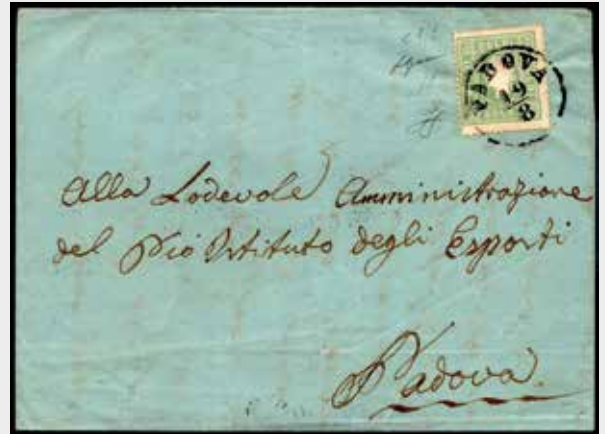 PADOVA
19
8
Alla Lodevole Amministrazione
del Pio Istituto degli Esposti
Padova.